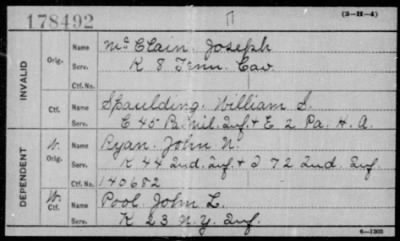 178492
(3-H-4)
INVALID
Orig.
Name McClain, Joseph
Serv. K 8 Tenn. Cav.
Ctf. No.
Ctf.
Name Spaulding, William S.
Serv. C 45 Pa. Mil. Inf. & E 2 Pa. H. A.
DEPENDENT
W.
Orig.
Name Ryan, John N.
Serv. K 44 Ind. Inf. & I 72 Ind. Inf.
Ctf. No. 140682
W.
Ctf.
Name Pool John L.
Serv. K 23 N.Y. Inf.
6—1303